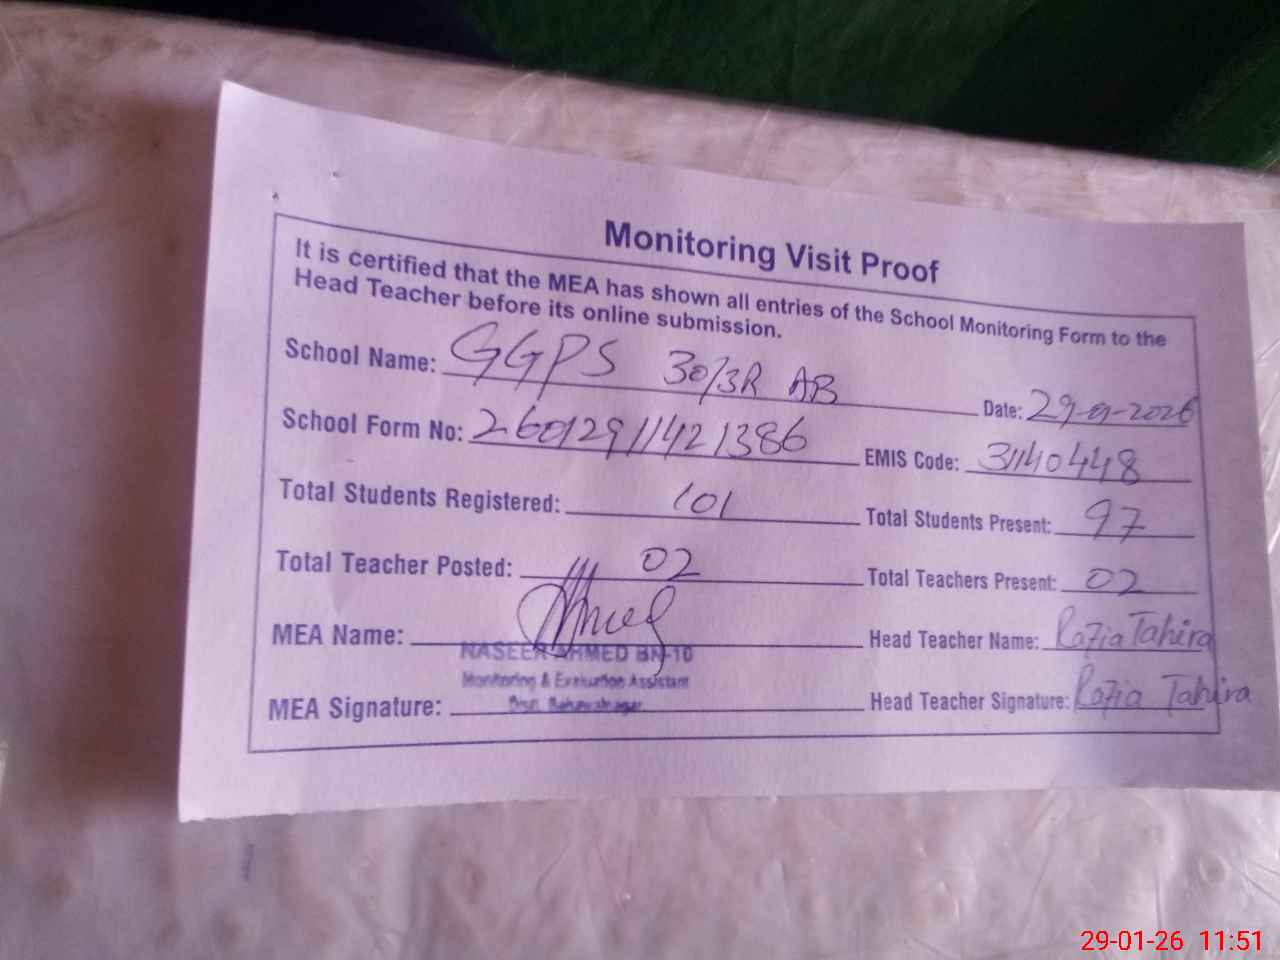 Monitoring Visit Proof
It is certified that the MEA has shown all entries of the School Monitoring Form to the
Head Teacher before its online submission.
School Name: GGPS 30/3R AB Date: 29-01-2026
School Form No: 26012911421386 EMIS Code: 31140448
Total Students Registered: 101 Total Students Present: 97
Total Teacher Posted: 02 Total Teachers Present: 02
MEA Name: Head Teacher Name: Razia Tahira
NASEER AHMED BN-10
Monitoring & Evaluation Assistant
MEA Signature: Head Teacher Signature: Razia Tahira
29-01-26 11:51